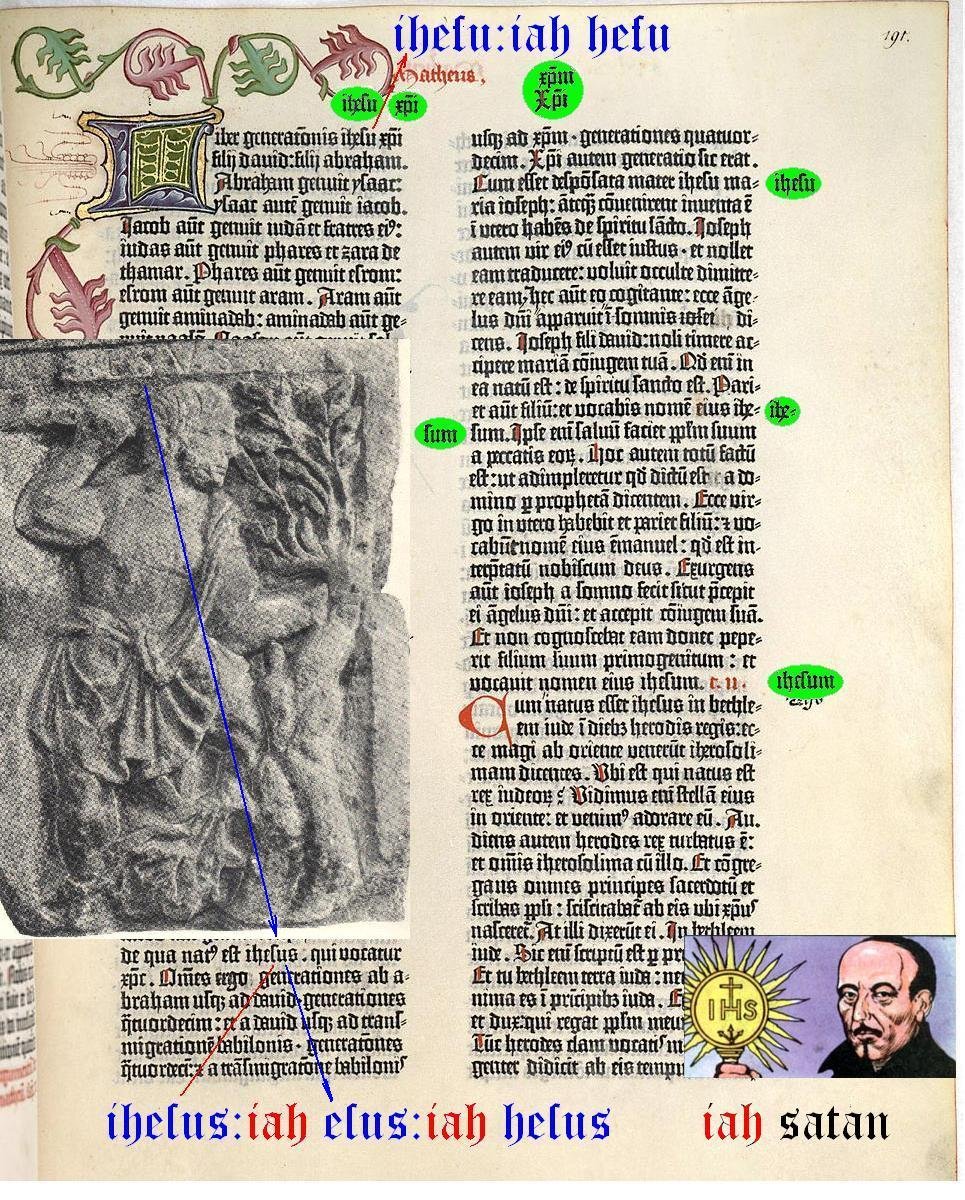 ihesu:iah hesu
191.
Matheus.
ihesu xp̄i
xp̄m
Xp̄i
Liber generac̄onis ihesu xp̄i
filij dauid:filij abraham.
Abraham genuit ysaac:
ysaac autē genuit iacob.
Iacob aūt genuit iudā et fratres ei⁹:
iudas aūt genuit phares et zara de
thamar. Phares aūt genuit esrom:
esrom aūt genuit aram. Aram aūt
genuit aminadab: aminadab aūt ge-
de qua nat⁹ est ihesus. qui vocatur
xp̄c. Om̄es ergo generationes ab a-
braham usq; ad dauid·generationes
q̄tuordecim: et a dauid usq; ad trans-
migrationē babilonis· generac̄ones
usq; ad xp̄um· generationes quatuor-
decim. Xp̄i autem generatio sic erat.
Cum esset despōsata mater ihesu ma-
ihesu
ria ioseph: āteq̄; cōuenirent inuenta ē
ī utero habēs de spiritu sācto. Ioseph
autem vir ei⁹ cū esset iustus· et nollet
eam traducere: voluit occulte dimitte-
re eam. hec aūt eo cogitante: ecce āge-
lus dn̄i apparuit ī somnis ioseph di-
cens. Ioseph fili dauid: noli timere ac-
cipere mariā cōiugem tuā. Qd̄ enī in
ea natū est: de spiritu sancto est. Pari-
et aūt filiū: et vocabis nomē eius ihe-
ihe-
sum
sum. Ipse enī saluū faciet pp̄lm suum
a peccatis eoꝝ. Hoc autem totū factū
est: ut adimpleretur qd̄ dictū est a do-
mino ꝑ prophetā dicentem. Ecce vir-
go in utero habebit et pariet filiū: ⁊ vo-
cabūt nomē eius ēmanuel: qd̄ est in-
terp̄tatū nobiscum deus. Exurgens
aūt ioseph a somno fecit sicut p̄cepit
ei āgelus dn̄i: et accepit cōiugem suā.
Et non cognoscebat eam donec pepe-
rit filium suum primogenitum : et
vocauit nomen eius ihesum. c. ii.
ihesum
Cum natus esset ihesus in bethle-
em iude ī dieb; herodis regis: ec-
ce magi ab oriente venerūt iherosoli-
mam dicentes. Vbi est qui natus est
rex iudeoꝝ? Vidimus enī stellā eius
in oriente: et venim⁹ adorare eū. Au-
diens autem herodes rex turbatus ē:
et om̄is iherosolima cū illo. Et cōgre-
gans omnes principes sacerdotū et
scribas pp̄li: sciscitabat̄ ab eis ubi xp̄us
nasceret̄. At illi dixerūt ei. In bethleem
iude. Sic enī scriptū est ꝑ
Et tu bethleem terra iuda:
nima es ī pricipib; iuda.
et dux: qui regat pp̄lm
Tūc herodes clam vocatis
genter didicit ab eis
IHS
ihesus:iah esus:iah hesus
iah satan